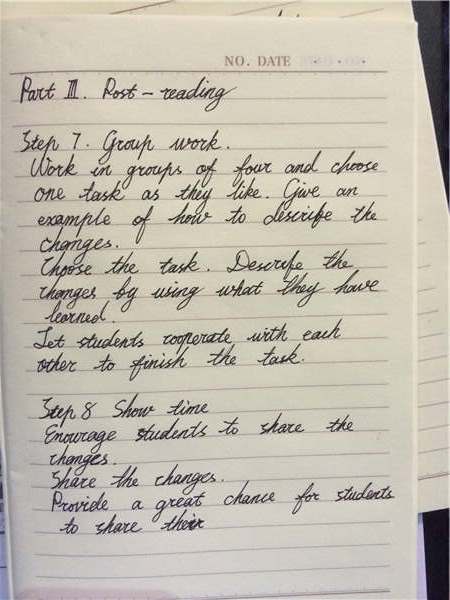 NO. DATE
Part III. Post-reading
Step 7. Group work.
Work in groups of four and choose
one task as they like. Give an
example of how to describe the
changes.
Choose the task. Describe the
changes by using what they have
learned.
Let students cooperate with each
other to finish the task.
Step 8 Show time
Enourage students to share the
changes.
Share the changes.
Provide a great chance for students
to share their